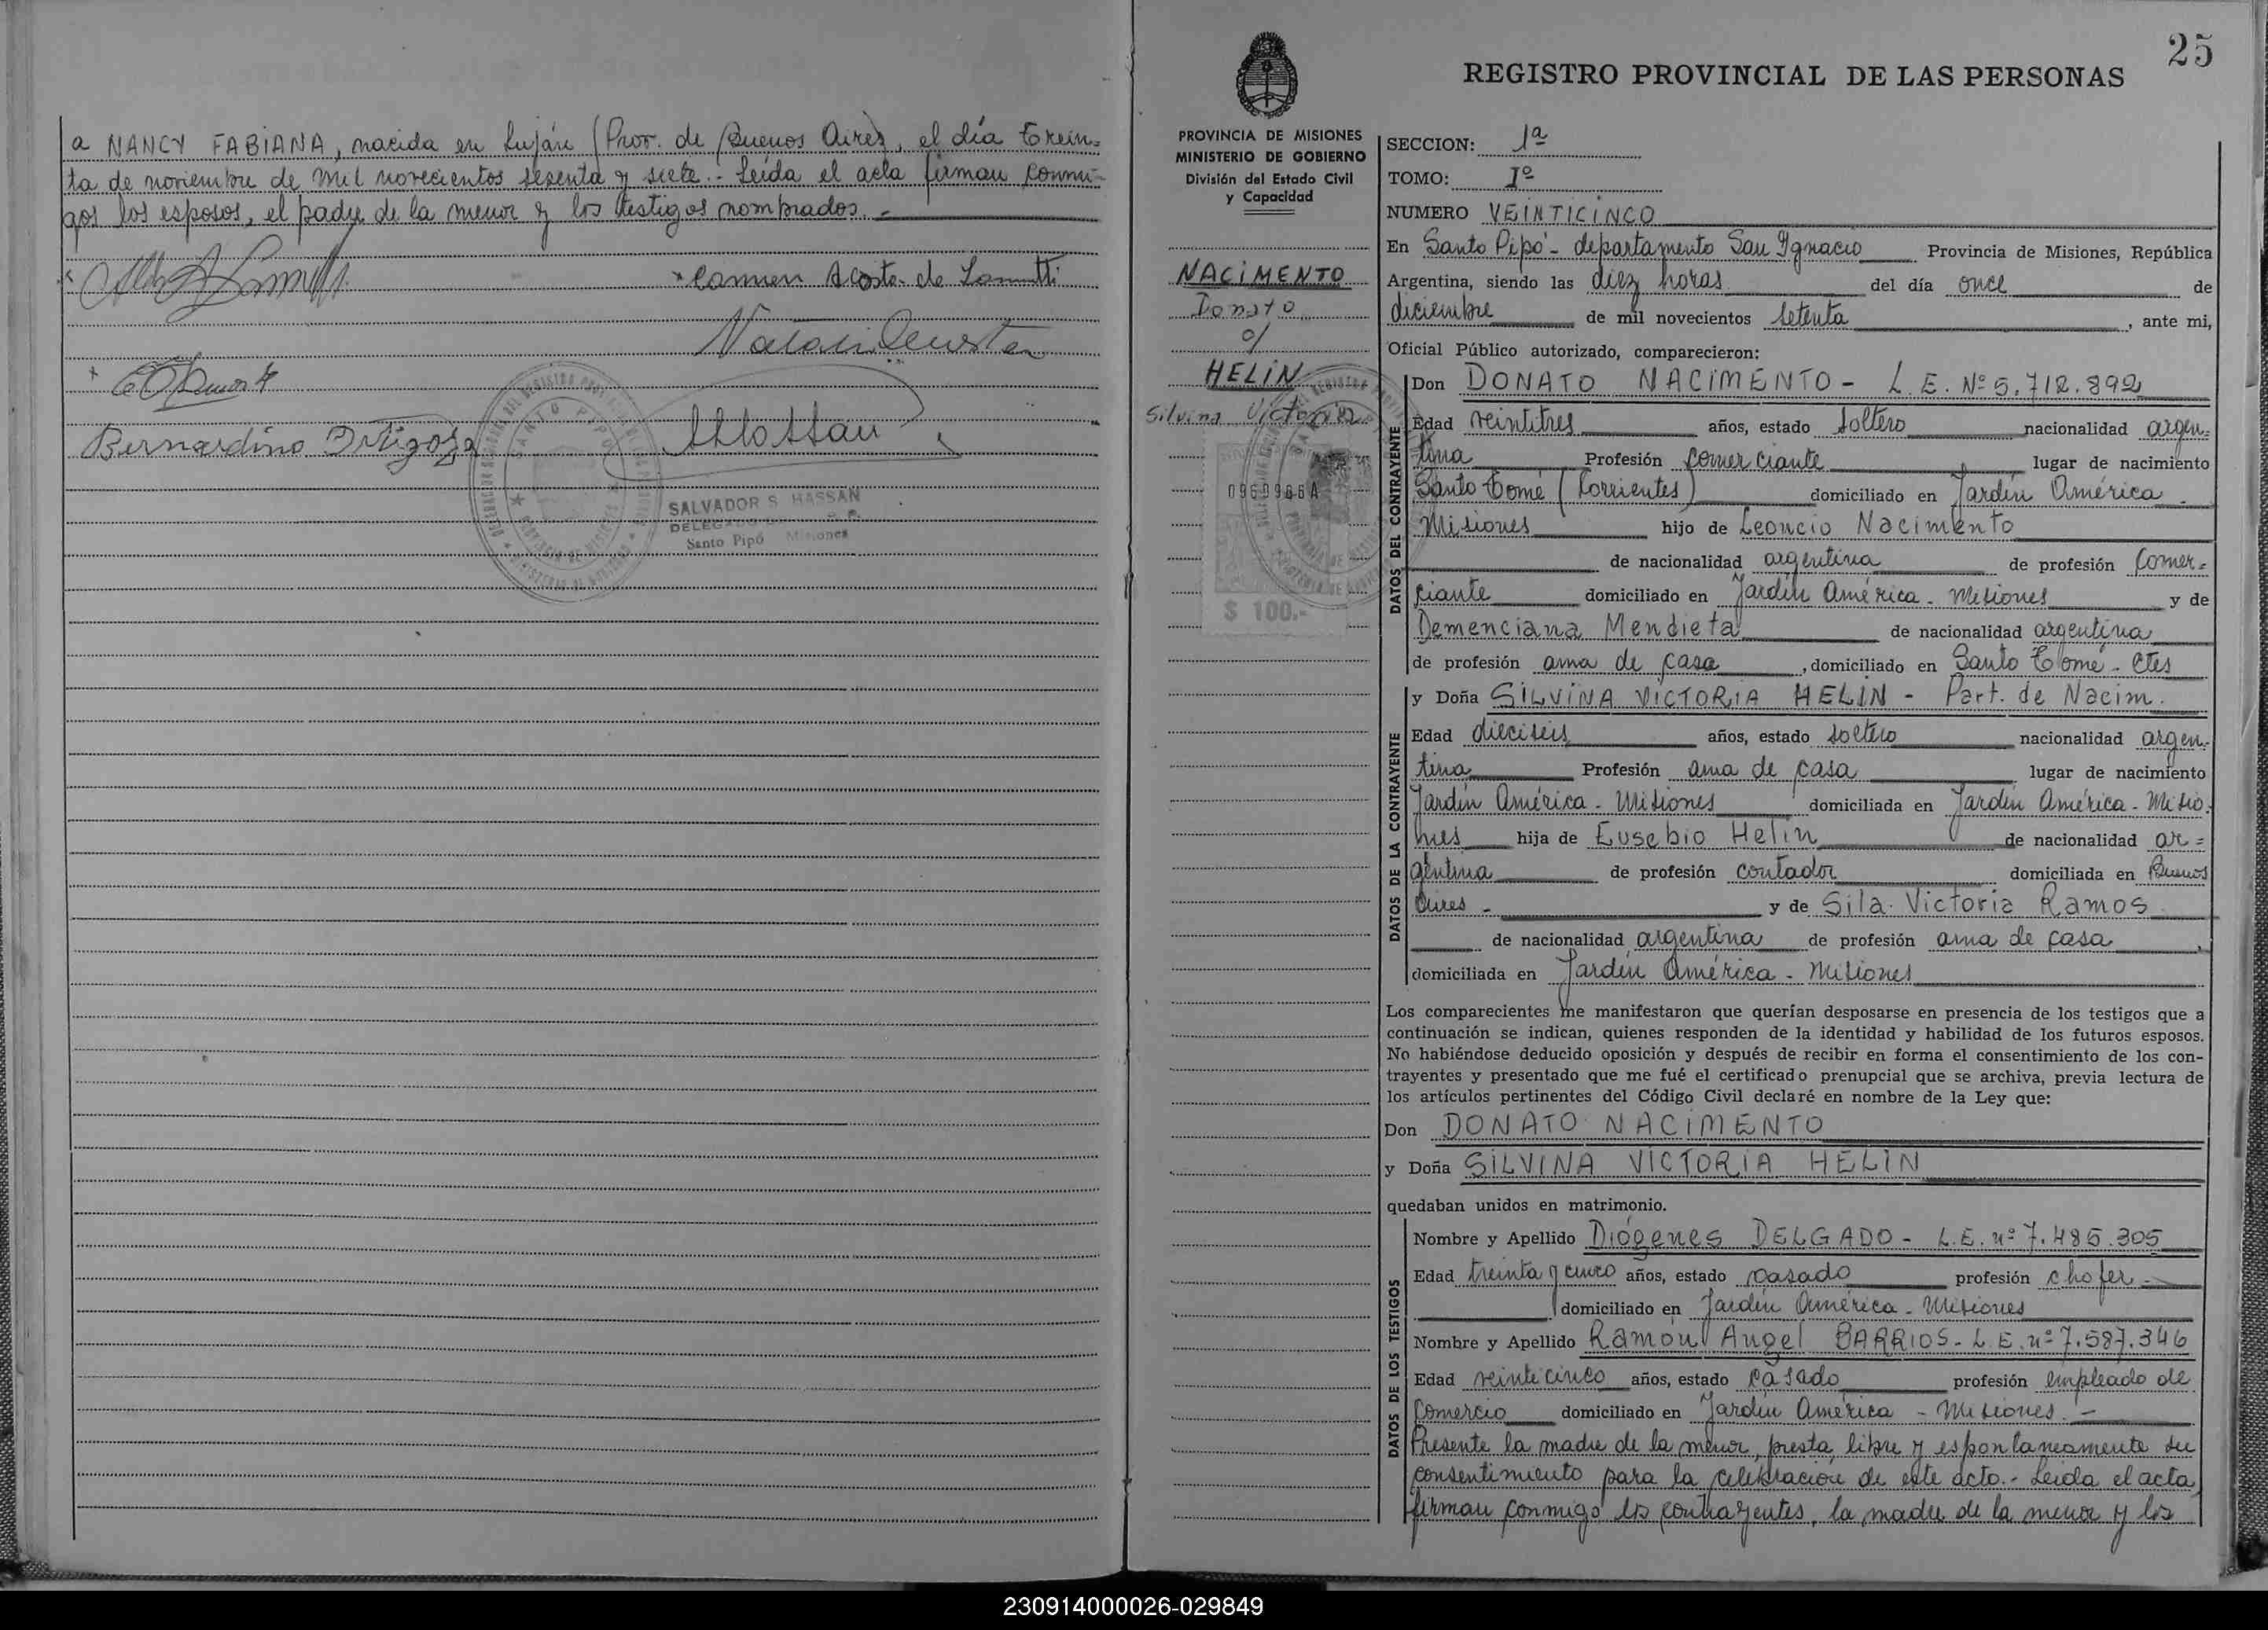 a NANCY FABIANA, nacida en Luján (Prov. de Buenos Aires), el día trein-
ta de noviembre de mil novecientos sesenta y siete.- Leída el acta firman conmi-
gos los esposos, el padre de la menor y los testigos nombrados. -
Carmen Acosta de
Bernardino Ortigoza
SALVADOR S. HASSAN
DELEGADO
Santo Pipó Misiones
25
REGISTRO PROVINCIAL DE LAS PERSONAS
PROVINCIA DE MISIONES
MINISTERIO DE GOBIERNO
División del Estado Civil
y Capacidad
NACIMENTO
Donato
c/
HELIN
Silvina Victoria
0969966A
$ 100.-
SECCION: 1ª
TOMO: Iº
NUMERO VEINTICINCO
En Santo Pipó - departamento San Ignacio Provincia de Misiones, República
Argentina, siendo las diez horas del día once de
diciembre de mil novecientos setenta, ante mi,
Oficial Público autorizado, comparecieron:
DATOS DEL CONTRAYENTE
Don DONATO NACIMENTO - L. E. Nº 5.712.892
Edad veintitres años, estado soltero nacionalidad argen-
tina Profesión comerciante lugar de nacimiento
Santo Tomé (Corrientes) domiciliado en Jardín América -
Misiones hijo de Leoncio Nacimento
de nacionalidad argentina de profesión comer-
ciante domiciliado en Jardín América - Misiones y de
Demenciana Mendieta de nacionalidad argentina
de profesión ama de casa, domiciliado en Santo Tomé - Ctes
DATOS DE LA CONTRAYENTE
y Doña SILVINA VICTORIA HELIN - Part. de Nacim.
Edad dieciseis años, estado soltero nacionalidad argen-
tina Profesión ama de casa lugar de nacimiento
Jardín América - Misiones domiciliada en Jardín América - Misio-
nes hija de Eusebio Helin de nacionalidad ar=
gentina de profesión contador domiciliada en Buenos
Aires - y de Sila Victoria Ramos
de nacionalidad argentina de profesión ama de casa,
domiciliada en Jardín América - Misiones
Los comparecientes me manifestaron que querían desposarse en presencia de los testigos que a
continuación se indican, quienes responden de la identidad y habilidad de los futuros esposos.
No habiéndose deducido oposición y después de recibir en forma el consentimiento de los con-
trayentes y presentado que me fué el certificado prenupcial que se archiva, previa lectura de
los artículos pertinentes del Código Civil declaré en nombre de la Ley que:
Don DONATO NACIMENTO
y Doña SILVINA VICTORIA HELIN
quedaban unidos en matrimonio.
DATOS DE LOS TESTIGOS
Nombre y Apellido Diógenes DELGADO - L.E. nº 7.485.305
Edad treinta y cinco años, estado casado profesión chofer -
domiciliado en Jardín América - Misiones
Nombre y Apellido Ramón Angel BARRIOS - L.E. nº 7.587.346
Edad veinticinco años, estado casado profesión empleado de
Comercio domiciliado en Jardín América - Misiones. -
Presente la madre de la menor, presta libre y espontaneamente su
consentimiento para la celebración de este acto.- Leída el acta,
firman conmigo los contrayentes, la madre de la menor y los
230914000026-029849